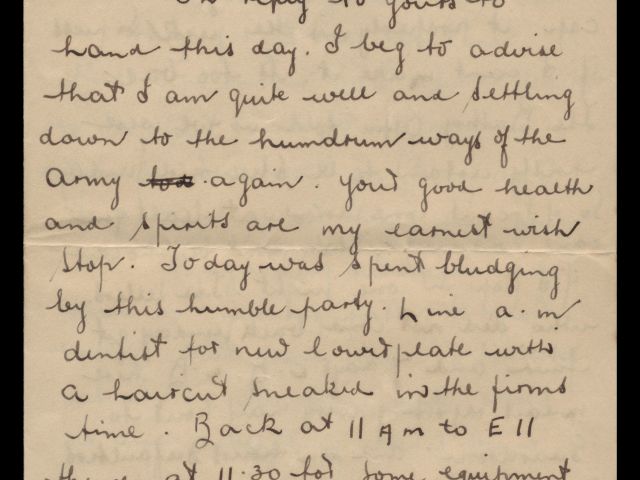 In reply to yours to
hand this day. I beg to advise
that I am quite well and settling
down to the humdrum ways of the
Army again. Your good health
and spirits are my earnest wish
stop. Today was spent bludging
by this humble party. Nine a.m
dentist for new lower plate with
a haircut sneaked in the firms
time. Back at 11 AM to E 11
there at 11.30 for some equipment